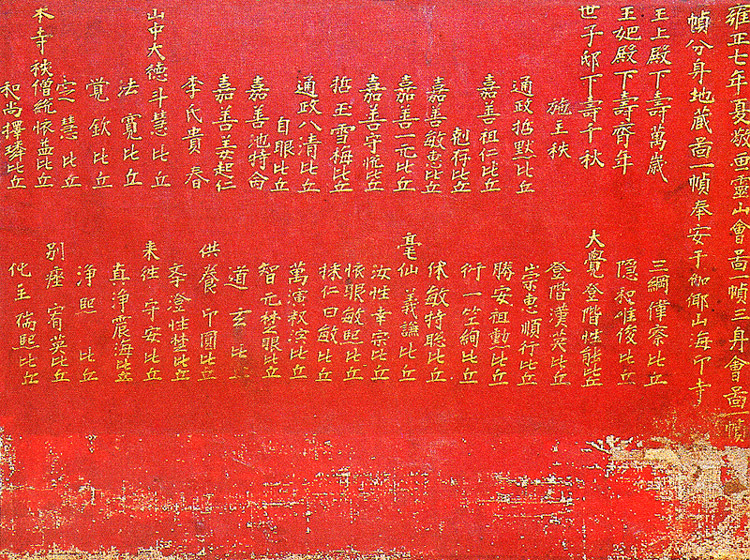 雍正七年夏敬画靈山會啚一幀三身會啚一幀
幀分身地藏啚一幀奉安于伽倻山海印寺
王上殿下壽萬歲
王妃殿下壽齊年
世子邸下壽千秋
施主秩
通政哲默比丘
嘉善祖仁比丘
尅存比丘
嘉善敏惠比丘
嘉善一元比丘
嘉善守悅比丘
哲玉雪梅比丘
通政八清比丘
自眼比丘
嘉善池特命
嘉善姜起仁
李氏貴春
山中大德斗慧比丘
法寬比丘
覺欽比丘
定慧比丘
本寺秩僧統懷益比丘
和尚擇璘比丘
三綱偉察比丘
隱和唯俊比丘
大覺登階性能比丘
登階漢英比丘
崇惠順行比丘
勝安祖動比丘
衍一竺絢比丘
敏特聡比丘
毫仙義謙比丘
汝性幸宗比丘
懷眼敏熙比丘
抹仁日敏比丘
萬演比丘
智元楚眼比丘
道玄比丘
供養印圓比丘
澄性楚比丘
來往守安比丘
真淨震海比丘
淨熙比丘
別座宥英比丘
化主瑞熙比丘